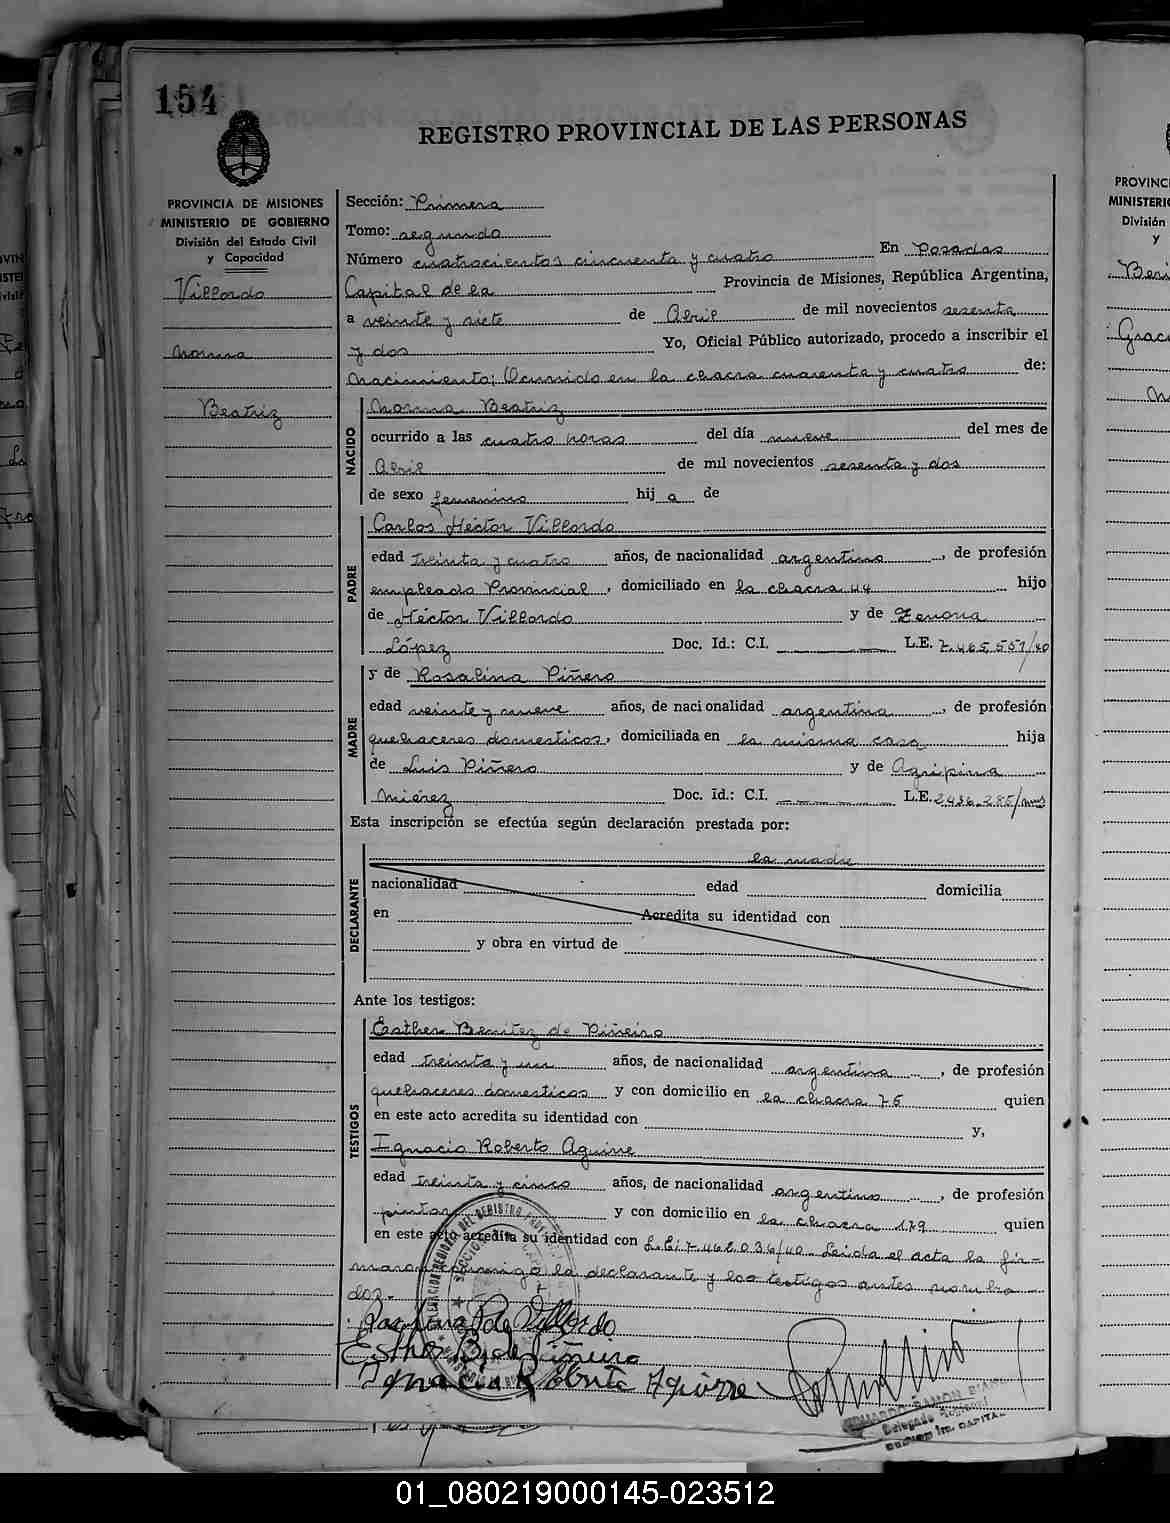 154
REGISTRO PROVINCIAL DE LAS PERSONAS
PROVINCIA DE MISIONES
MINISTERIO DE GOBIERNO
División del Estado Civil
y Capacidad
Villordo
Norma
Beatriz
Sección: Primera
Tomo: segundo
Número cuatrocientos cincuenta y cuatro En Posadas
Capital de la Provincia de Misiones, República Argentina,
a veinte y siete de Abril de mil novecientos sesenta
y dos Yo, Oficial Público autorizado, procedo a inscribir el
Nacimiento; Ocurrido en la chacra cuarenta y cuatro de:
NACIDO
Norma Beatriz
ocurrido a las cuatro horas del día nueve del mes de
Abril de mil novecientos sesenta y dos
de sexo femenino hij a de
PADRE
Carlos Héctor Villordo
edad treinta y cuatro años, de nacionalidad argentino, de profesión
empleado Provincial, domiciliado en la chacra 44 hijo
de Héctor Villordo y de Zenona
López Doc. Id.: C.I. L.E. 7.465.557/40
MADRE
y de Rosalina Piñero
edad veinte y nueve años, de nacionalidad argentina, de profesión
quehaceres domesticos, domiciliada en la misma casa hija
de Luis Piñero y de Agripina
Mierez Doc. Id.: C.I. L.E.
Esta inscripción se efectúa según declaración prestada por:
DECLARANTE
la madre
nacionalidad edad domicilia
en Acredita su identidad con
y obra en virtud de
Ante los testigos:
TESTIGOS
Esther Benitez de Piñeiro
edad treinta y un años, de nacionalidad argentina, de profesión
quehaceres domesticos y con domicilio en la chacra 76 quien
en este acto acredita su identidad con y,
Ignacio Roberto Aguirre
edad treinta y cinco años, de nacionalidad argentino, de profesión
pintor y con domicilio en la chacra 179 quien
en este acto acredita su identidad con L.E. 7.462.036/40 Leida el acta la fir-
maron conmigo la declarante y los testigos antes nombra
dos.-
Rosalina P de Villordo
Esther B de Piñeiro
Ignacio Roberto Aguirre
EDUARDO RAMON
Delegado
CAPITAL
PROVINC
MINISTERIO
División
y
01_080219000145-023512